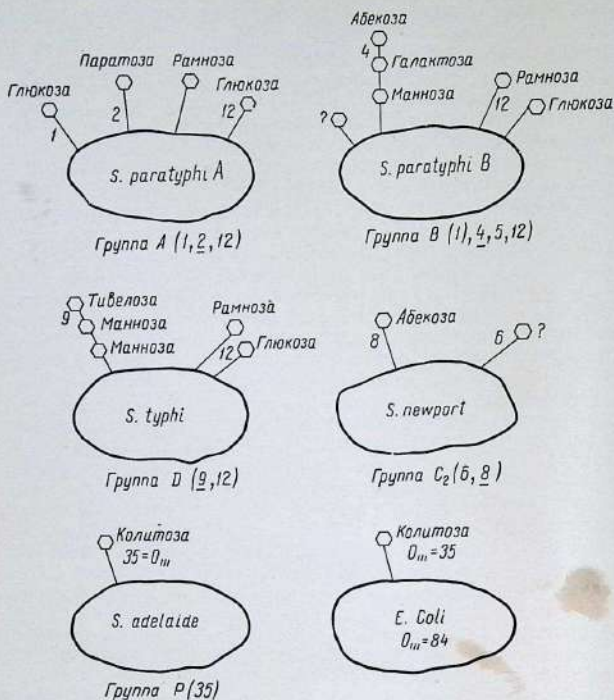 Глюкоза
1
Паратоза
2
Рамноза
Глюкоза
12
S. paratyphi A
Группа A (1, 2, 12)
Абекоза
4
Галактоза
Манноза
?
Рамноза
12
Глюкоза
S. paratyphi B
Группа B (1), 4, 5, 12)
Тивелоза
9
Манноза
Манноза
Рамноза
12
Глюкоза
S. typhi
Группа D (9, 12)
Абекоза
8
6
?
S. newport
Группа C₂ (6, 8)
Колитоза
35=O₁₁₁
S. adelaide
Группа P (35)
Колитоза
O₁₁₁=35
E. Coli
O₁₁₁=84